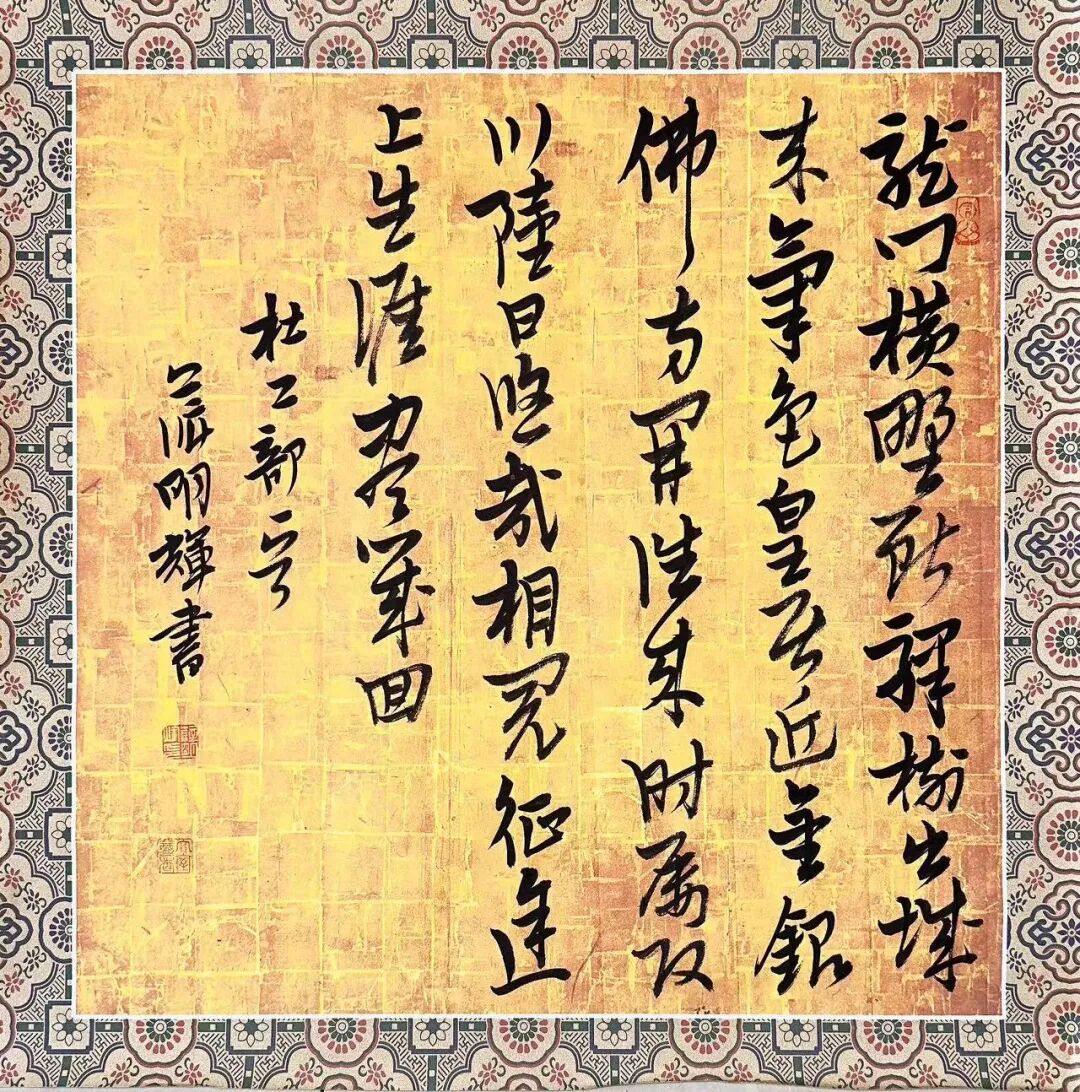 龍门橫野斷驛樹出城
来氣色皇居近金銀
佛寺開往来时屡改
川陸日悠哉相閱征途
上生涯盡幾回
杜工部
明輝書